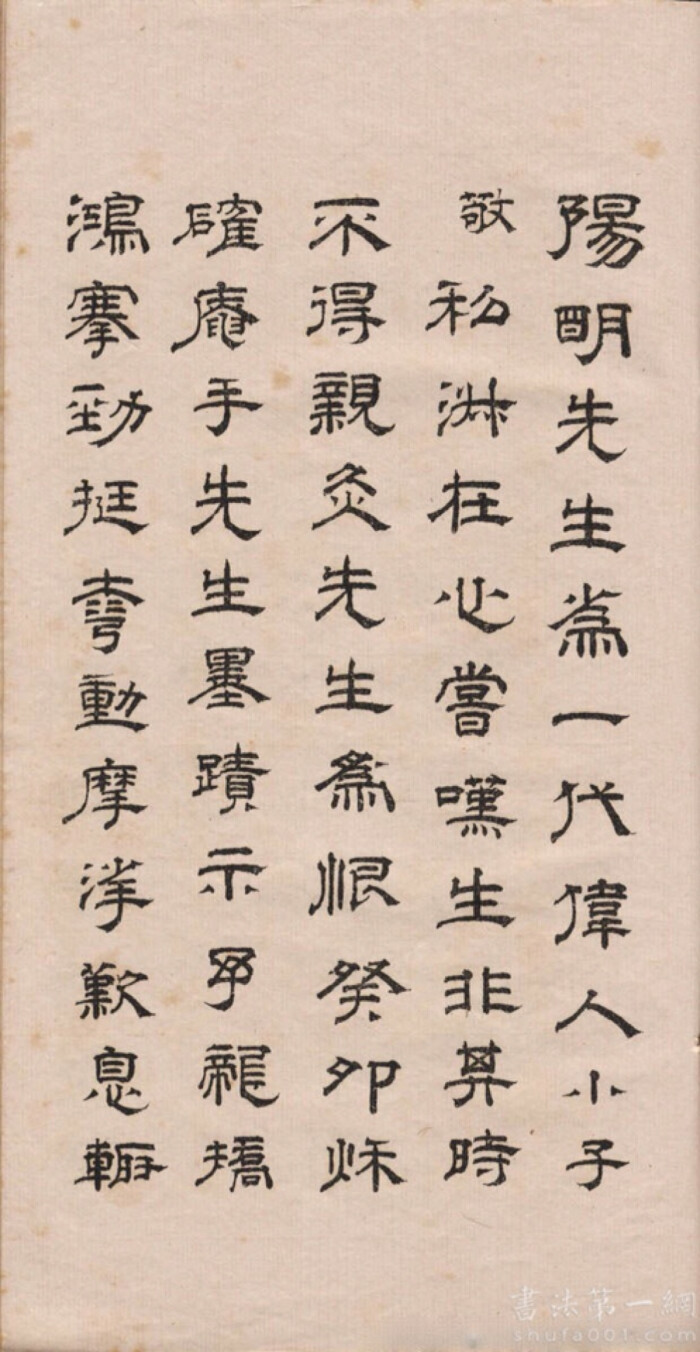 陽明先生為一代偉人小子
敬私淑在心嘗嘆生非其時
不得親炙先生為恨癸卯秌
確庵手先生墨蹟示予龍撟
鴻搴勁挺動摩挲歎息輙
書法第一網
shufa001.com